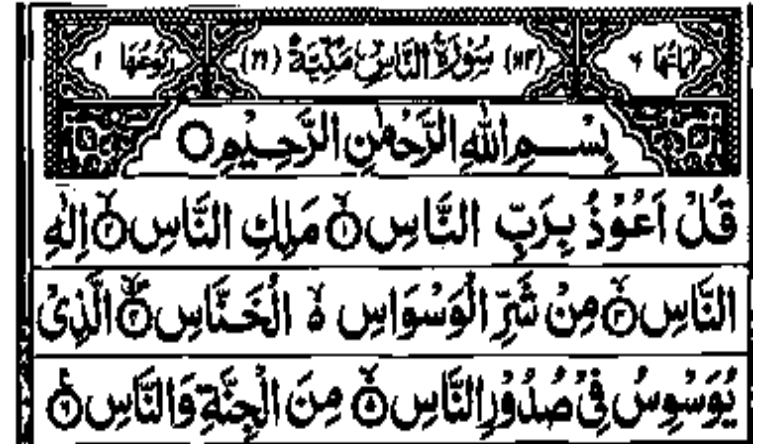 اٰيَاتُهَا ٦ (١١٤) سُوْرَةُ النَّاسِ مَكِّيَّةٌ (٢١) رُكُوْعُهَا ١
بِسْمِ اللهِ الرَّحْمٰنِ الرَّحِيْمِ ○
قُلْ اَعُوْذُ بِرَبِّ النَّاسِ ۙ﴿١﴾ مَلِكِ النَّاسِ ۙ﴿٢﴾ اِلٰهِ
النَّاسِ ۙ﴿٣﴾ مِنْ شَرِّ الْوَسْوَاسِ ۙ۬ الْخَنَّاسِ ۪ۙ﴿٤﴾ الَّذِىْ
يُوَسْوِسُ فِىْ صُدُوْرِ النَّاسِ ۙ﴿٥﴾ مِنَ الْجِنَّةِ وَالنَّاسِ ﴿٦﴾